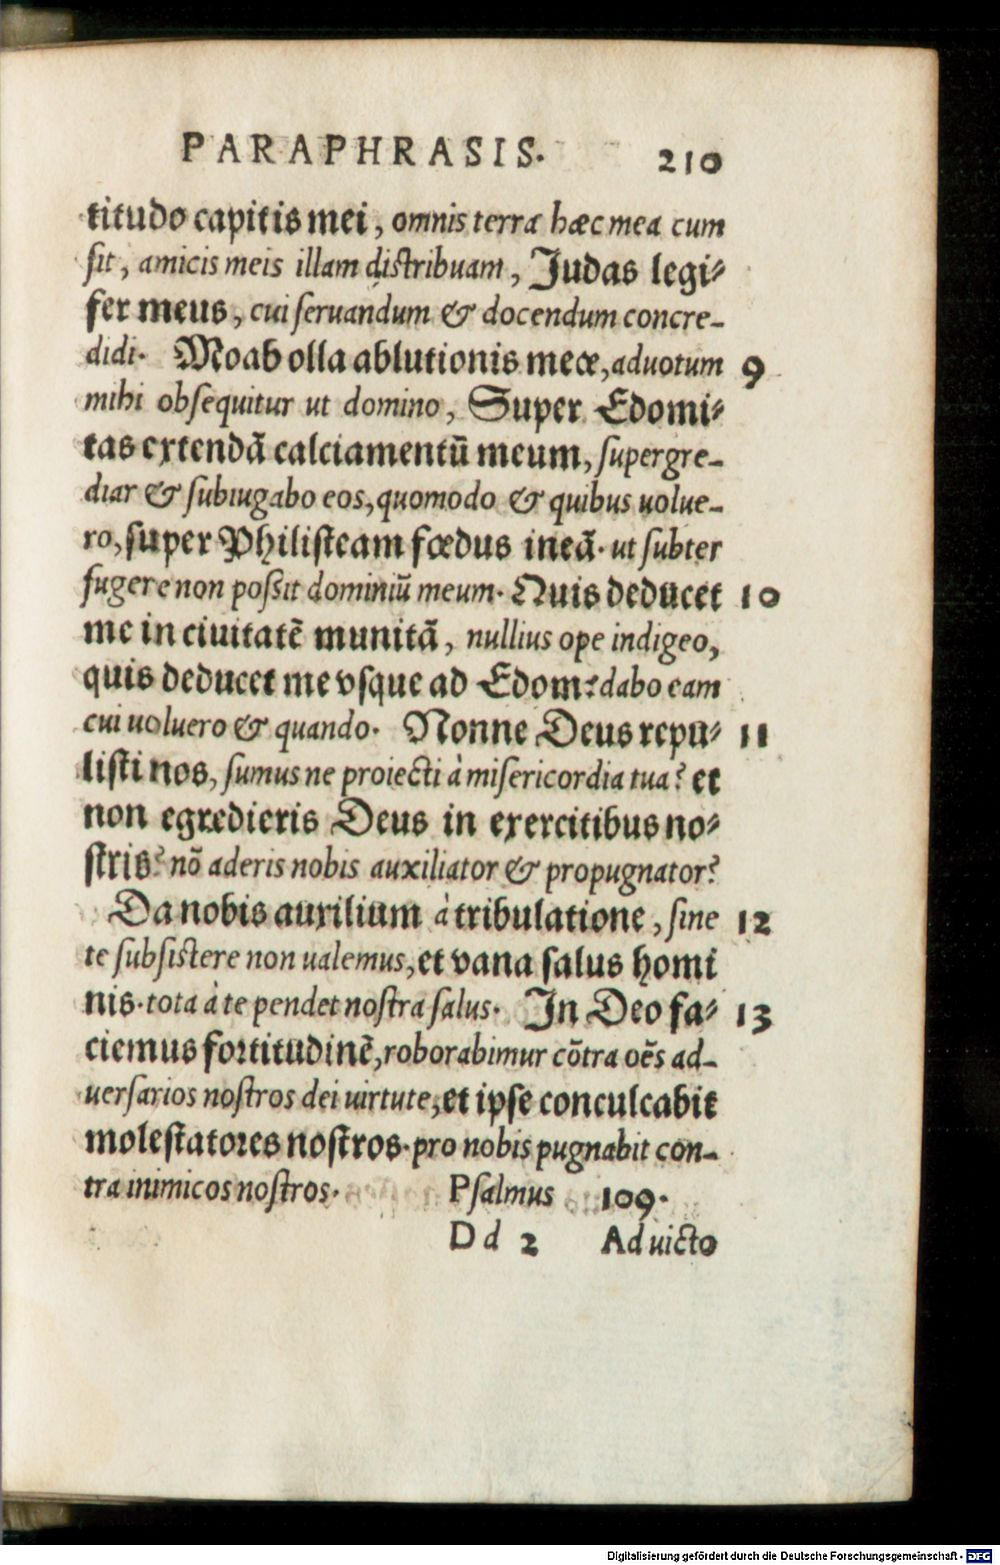 PARAPHRASIS. 210
titudo capitis mei, omnis terra hæc mea cum
sit, amicis meis illam distribuam, Judas legi⸗
fer meus, cui seruandum & docendum concre-
didi. Moab olla ablutionis meæ, aduotum 9
mihi obsequitur ut domino, Super Edomi⸗
tas extendã calciamentũ meum, supergre-
diar & subiugabo eos, quomodo & quibus uolue-
ro, super Philisteam fœdus ineã. ut subter
fugere non possit dominiũ meum. Quis deducet 10
me in ciuitatẽ munitã, nullius ope indigeo,
quis deducet me vsque ad Edom? dabo eam
cui uoluero & quando. Nonne Deus repu⸗ 11
listi nos, sumus ne proiecti à misericordia tua? et
non egredieris Deus in exercitibus no⸗
stris? nõ aderis nobis auxiliator & propugnator?
Da nobis auxilium à tribulatione, sine 12
te subsistere non ualemus, et vana salus homi
nis. tota à te pendet nostra salus. In Deo fa⸗ 13
ciemus fortitudinẽ, roborabimur cõtra oẽs ad-
uersarios nostros dei uirtute, et ipse conculcabit
molestatores nostros. pro nobis pugnabit con-
tra inimicos nostros. Psalmus 109.
Dd 2 Ad uicto
Digitalisierung gefördert durch die Deutsche Forschungsgemeinschaft - DFG